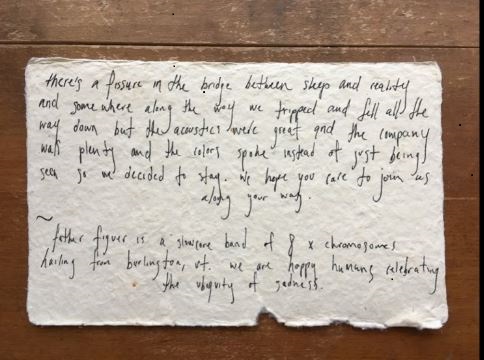 there's a fissure in the bridge between sleep and reality
and somewhere along the way we tripped and fell all the
way down but the acoustics were great and the company
was plenty and the colors spoke instead of just being
seen so we decided to stay. we hope you care to join us
along your way.
~
father figuer is a slowcore band of 8 x chromosomes
hailing from burlington, vt. we are happy humans celebrating
the ubiquity of sadness.